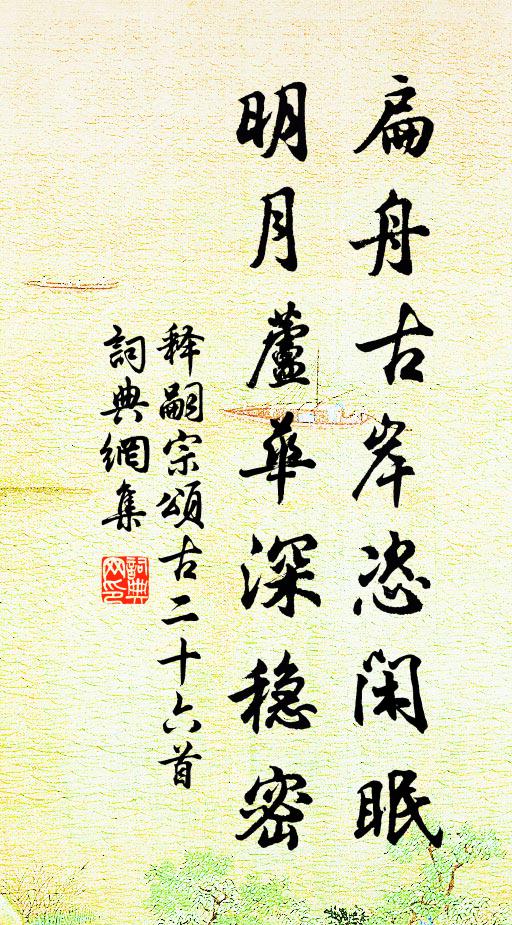 扁舟古岸恣闲眠
明月蘆華深稳密
释嗣宗頌古二十六首
詞典網集
詞典网印